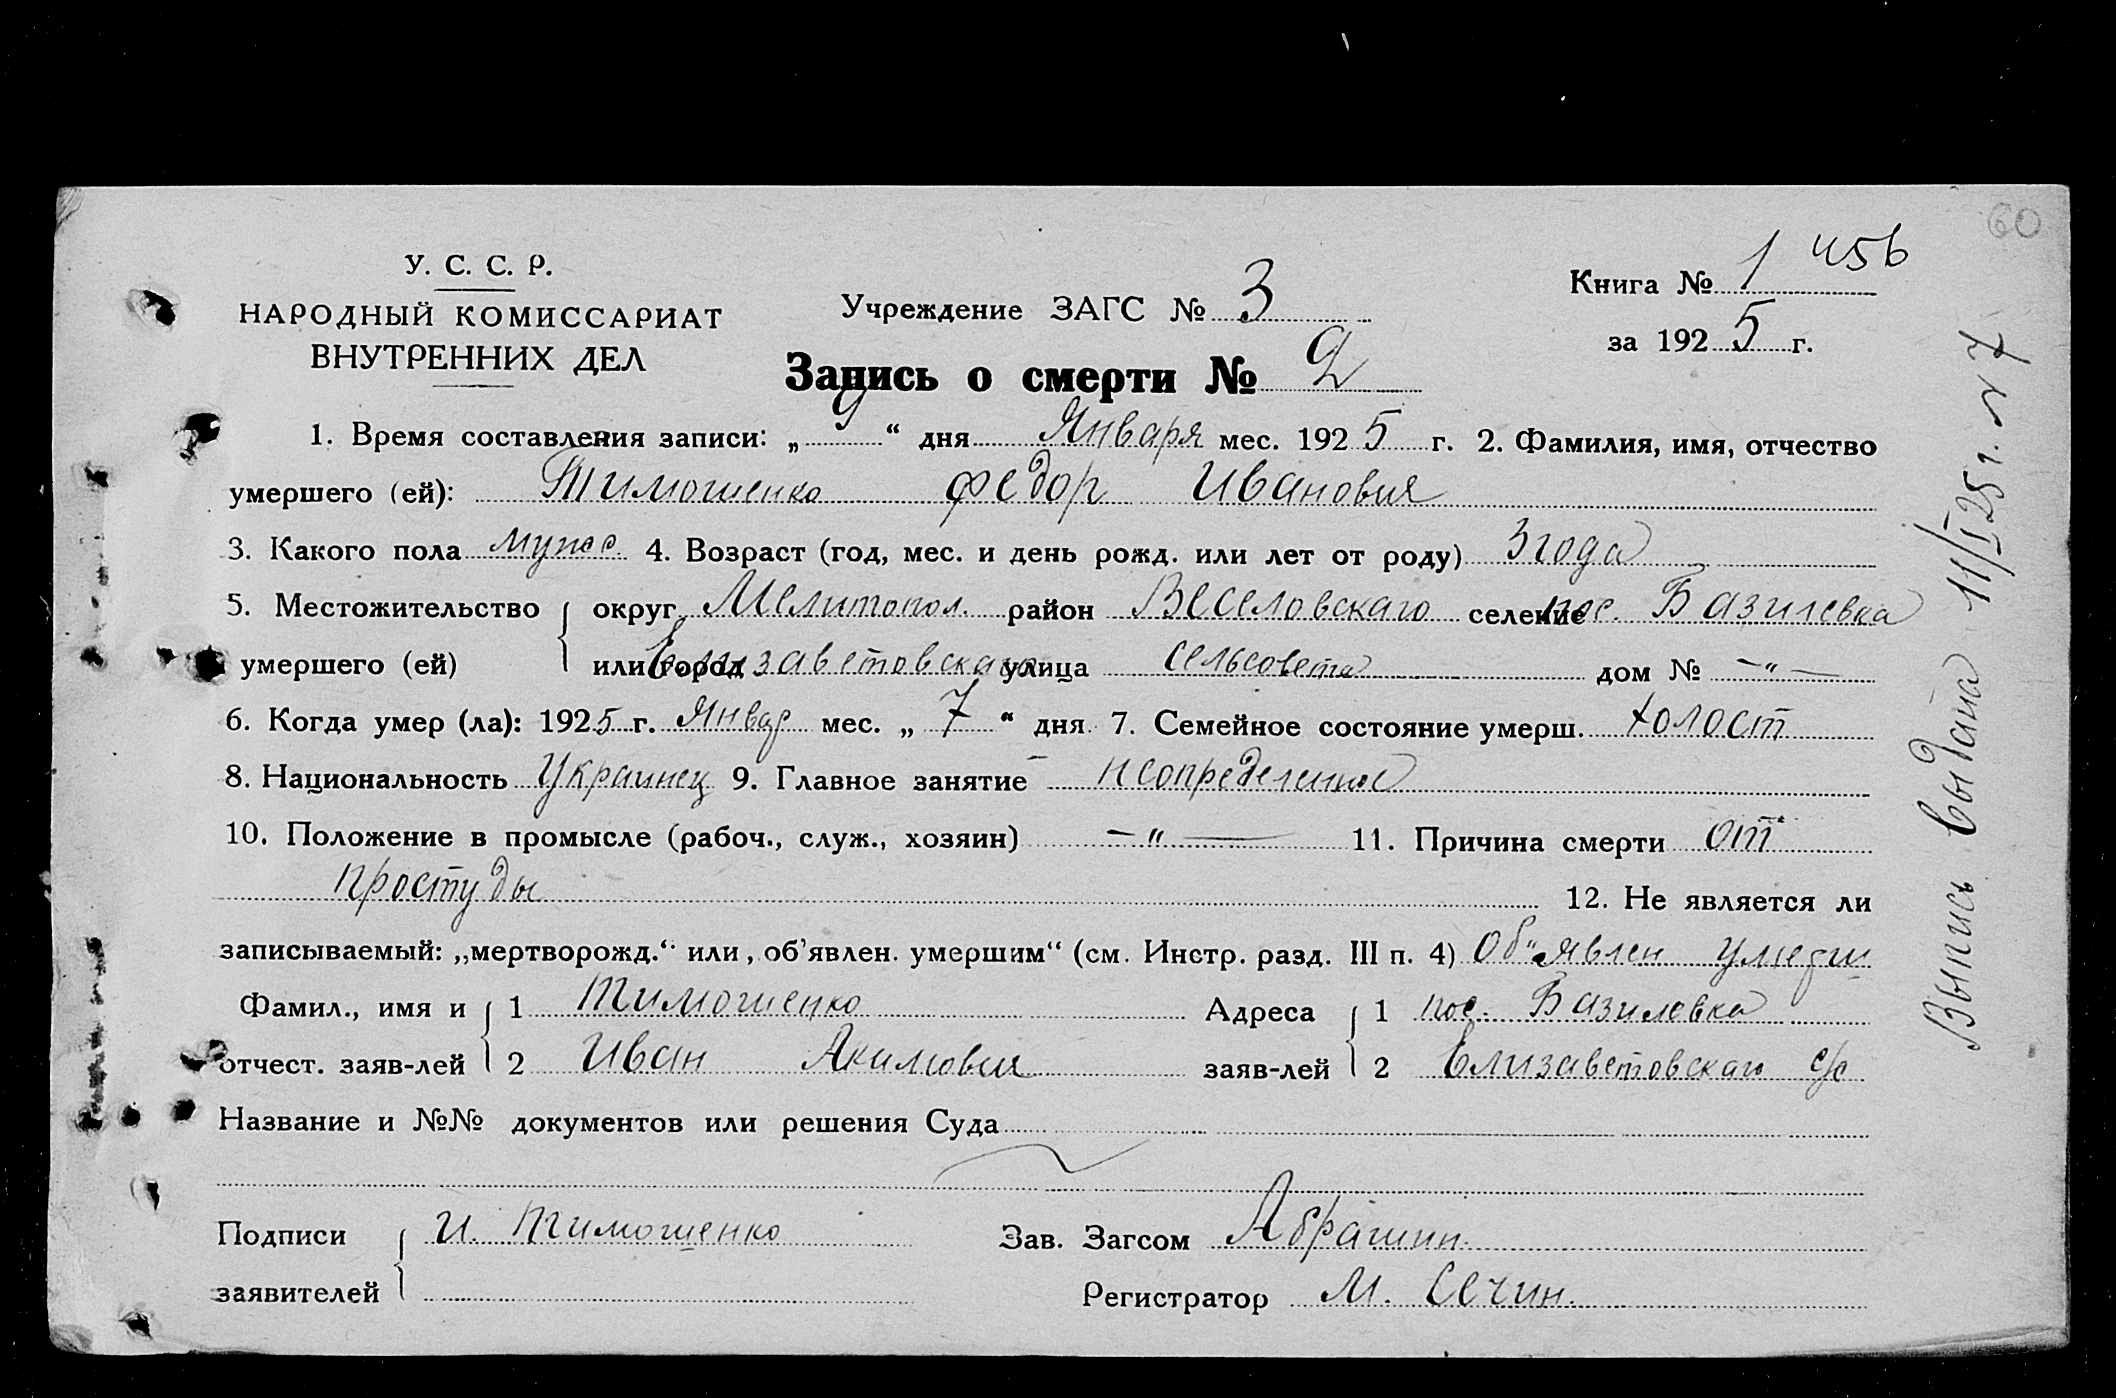 60
У. С. С. Р.
НАРОДНЫЙ КОМИССАРИАТ
ВНУТРЕННИХ ДЕЛ
Учреждение ЗАГС № 3
Книга № 1
за 1925 г.
Запись о смерти № 2
1. Время составления записи: „ 9 “ дня Января мес. 1925 г. 2. Фамилия, имя, отчество
умершего (ей): Тимошенко Федор Иванович
3. Какого пола мужс 4. Возраст (год, мес. и день рожд. или лет от роду) 3 года
5. Местожительство округ Мелитопол. район Веселовскаго селение пос. Базилевка
умершего (ей) или город Елизаветовскаго улица сельсовета дом № —„—
6. Когда умер (ла): 1925 г. Январ мес. „ 7 “ дня 7. Семейное состояние умерш. холост
8. Национальность Украинец 9. Главное занятие неопределенное
10. Положение в промысле (рабоч., служ., хозяин) —„— 11. Причина смерти от
простуды 12. Не является ли
записываемый: „мертворожд.“ или „об’явлен. умершим“ (см. Инстр. разд. III п. 4) Об"явлен умерш
Фамил., имя и 1 Тимошенко Адреса 1 пос. Базилевка
отчест. заяв-лей 2 Иван Акимович заяв-лей 2 Елизаветовскаго с/с
Название и №№ документов или решения Суда
Подписи И. Тимошенко Зав. Загсом Абрашин.
заявителей Регистратор М. Сечин.
Выпись выдана 11/I 25 г. № 7